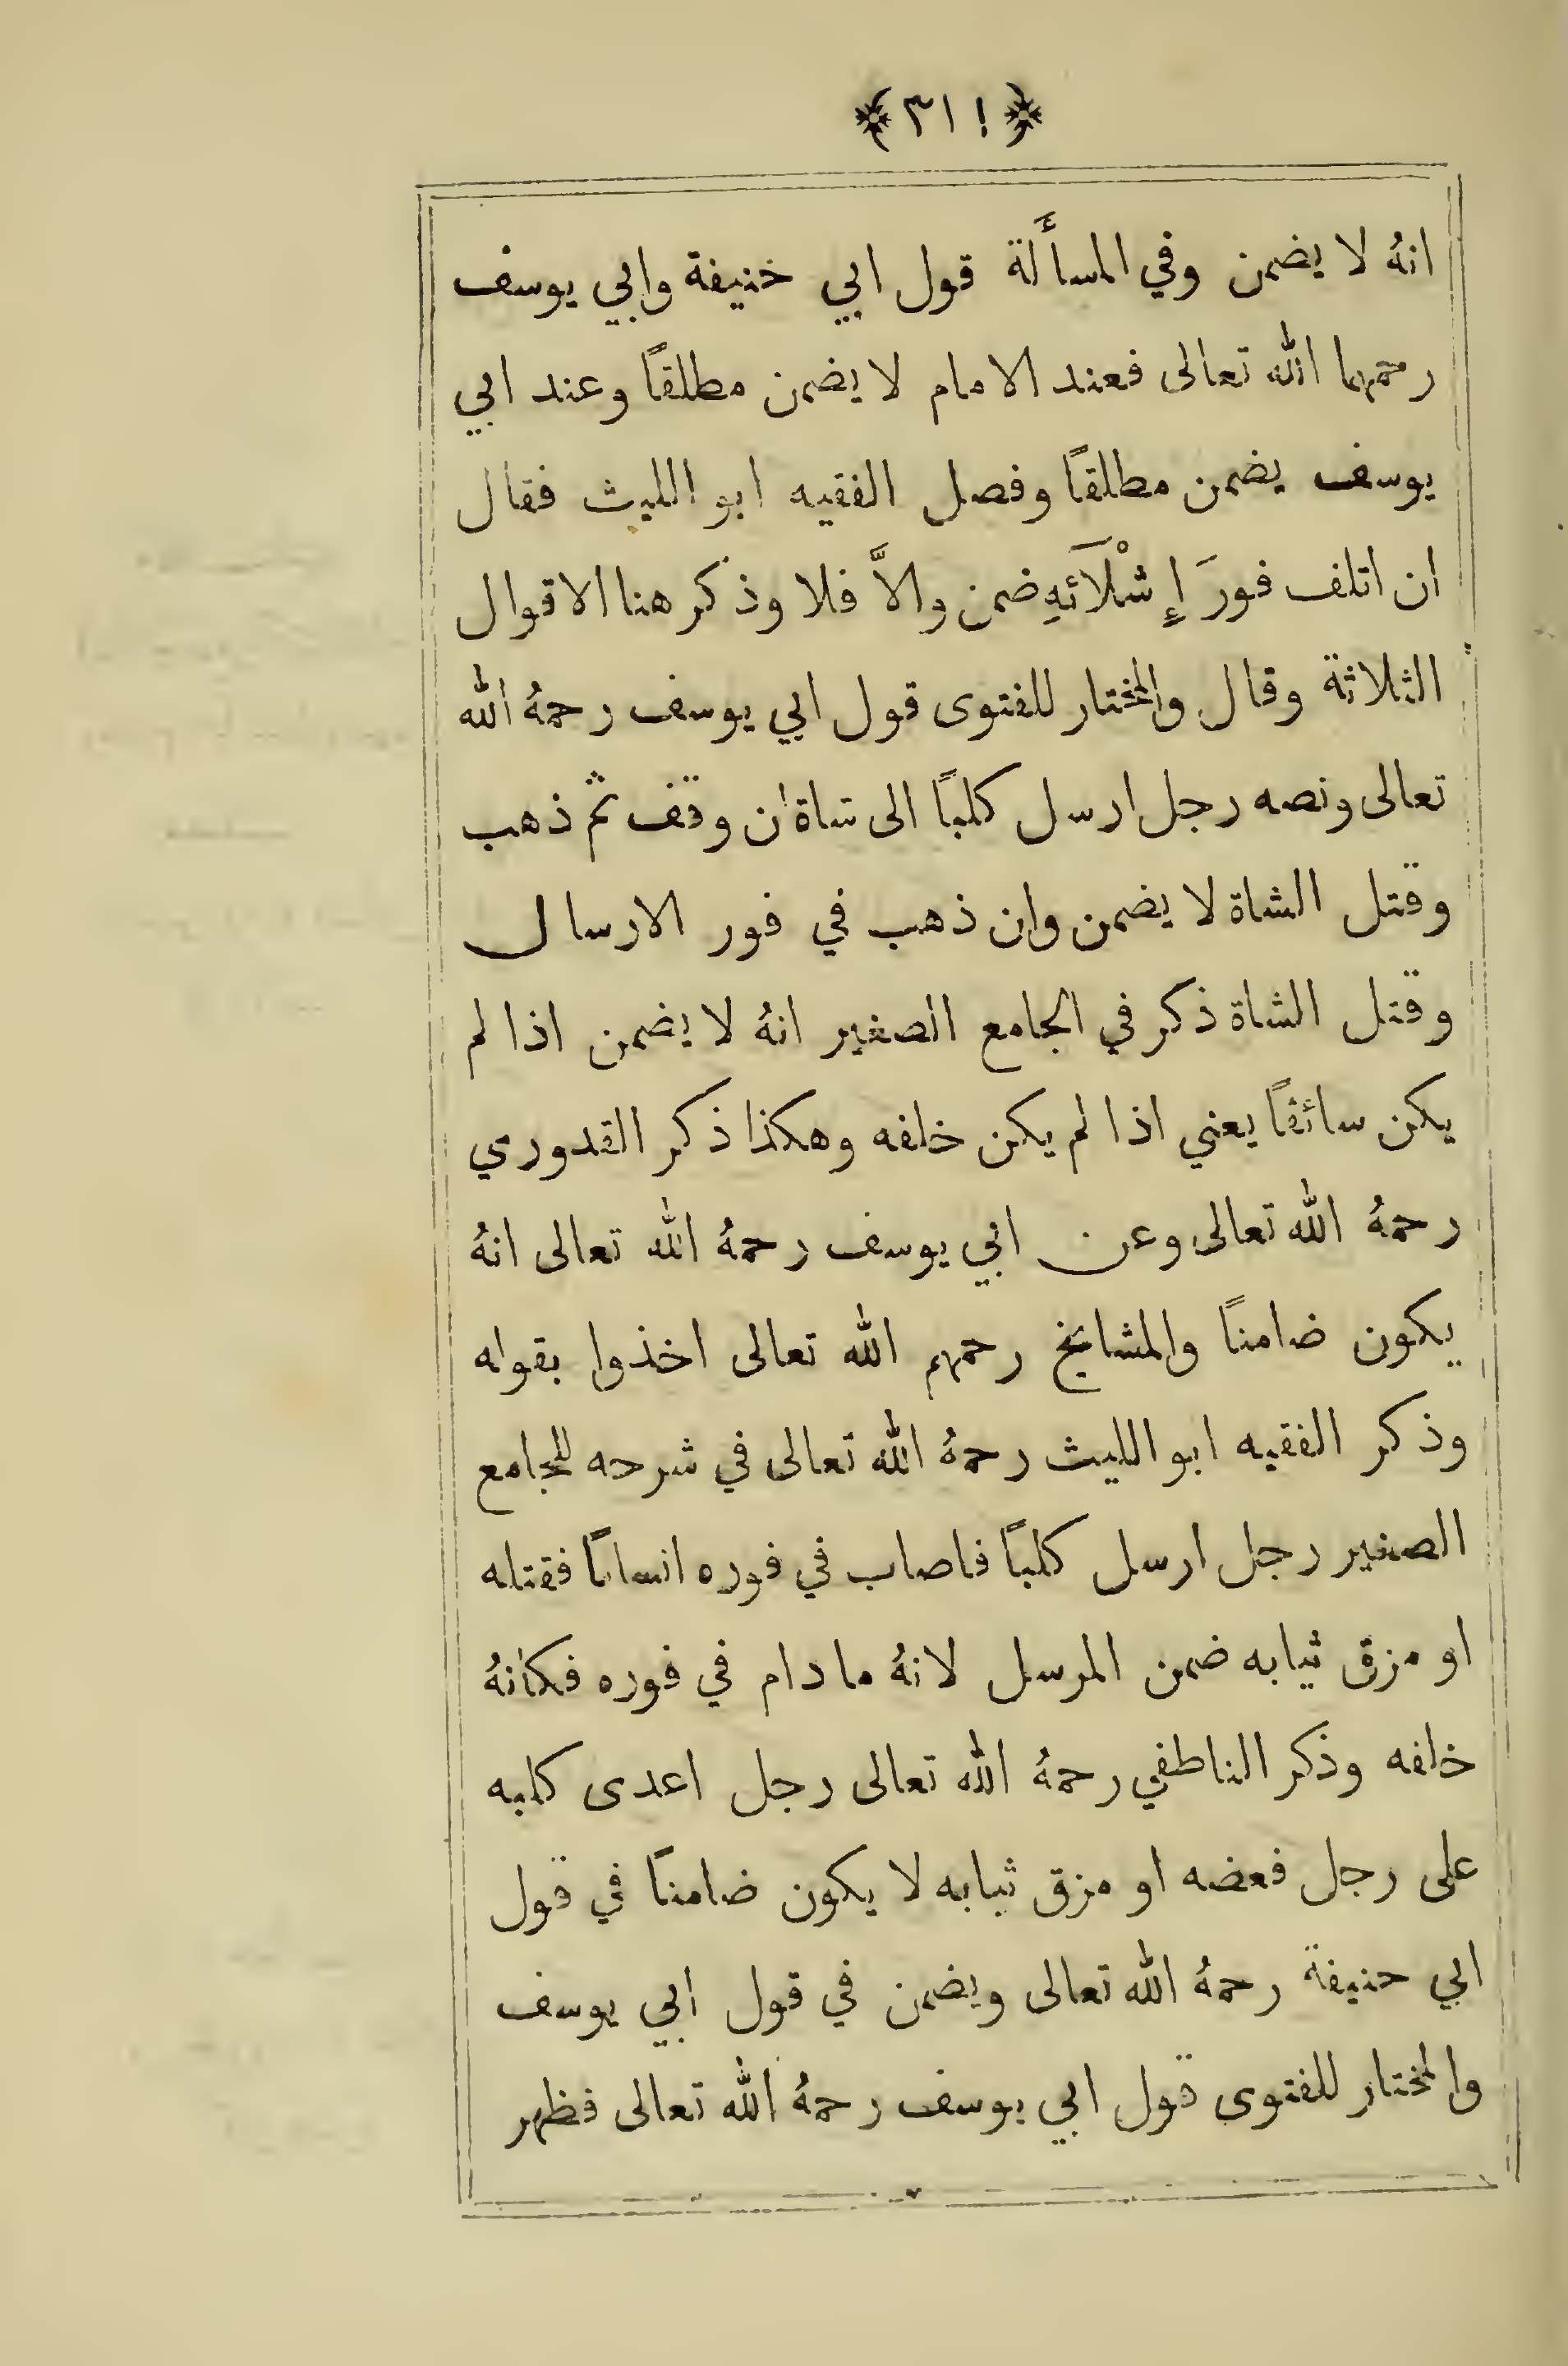 ﴿٣١١﴾
انهُ لا يضمن وفي المسأَلة قول ابي خنيفة وابي يوسف
رحمهما الله تعالى فعند الامام لا يضمن مطلقاً وعند ابي
يوسف يضمن مطلقاً وفصل الفقيه ابو الليث فقال
ان اتلف فورَ إِشْلَائَهِ ضمن والاَّ فلا وذكر هنا الاقوال
الثلاثة وقال والمختار للفتوى قول ابي يوسف رحمهُ الله
تعالى ونصه رجل ارسل كلباً الى شاة ان وقف ثم ذهب
وقتل الشاة لا يضمن وان ذهب في فور الارسال
وقتل الشاة ذكر في الجامع الصغير انهُ لا يضمن اذا لم
يكن سائقاً يعني اذا لم يكن خلفه وهكذا ذكر القدوري
رحمهُ الله تعالى وعن ابي يوسف رحمهُ الله تعالى انهُ
يكون ضامناً والمشايخ رحمهم الله تعالى اخذوا بقوله
وذكر الفقيه ابو الليث رحمهُ الله تعالى في شرحه للجامع
الصغير رجل ارسل كلباً فاصاب في فوره انساناً فقتله
او مزق ثيابه ضمن المرسل لانهُ ما دام في فوره فكانهُ
خلفه وذكر الناطفي رحمهُ الله تعالى رجل اعدى كلبه
على رجل فعضه او مزق ثيابه لا يكون ضامناً في قول
ابي حنيفة رحمهُ الله تعالى ويضمن في قول ابي يوسف
والمختار للفتوى قول ابي يوسف رحمهُ الله تعالى فظهر